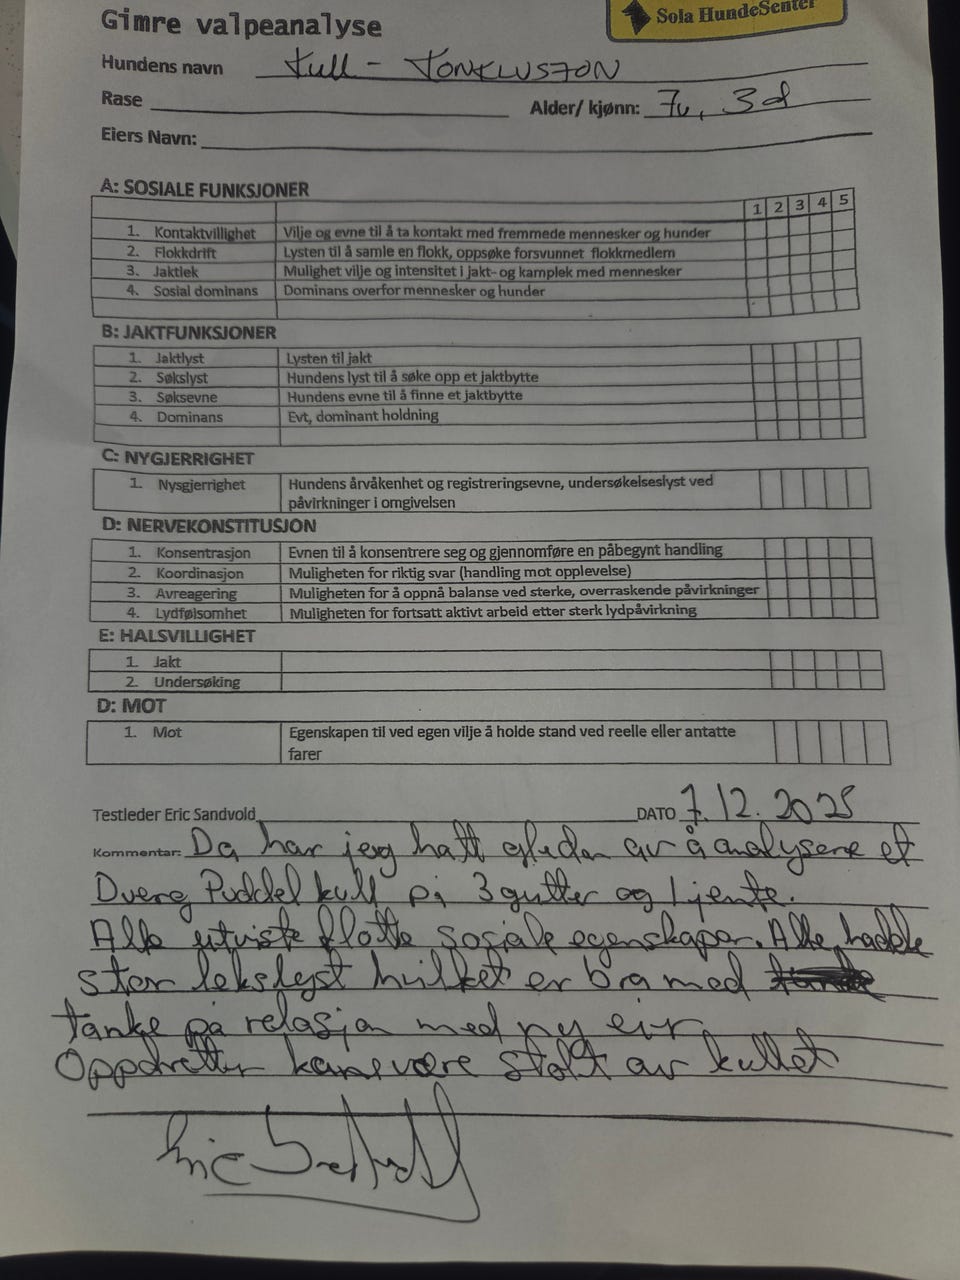 Gimre valpeanalyse
Sola HundeSenter
Hundens navn Kull - KONKLUSJON
Rase
Alder/ kjønn: 7u, 3♂
Eiers Navn:
A: SOSIALE FUNKSJONER
1 2 3 4 5
1. Kontaktvillighet Vilje og evne til å ta kontakt med fremmede mennesker og hunder
2. Flokkdrift Lysten til å samle en flokk, oppsøke forsvunnet flokkmedlem
3. Jaktlek Mulighet vilje og intensitet i jakt- og kamplek med mennesker
4. Sosial dominans Dominans overfor mennesker og hunder
B: JAKTFUNKSJONER
1. Jaktlyst Lysten til jakt
2. Søkslyst Hundens lyst til å søke opp et jaktbytte
3. Søksevne Hundens evne til å finne et jaktbytte
4. Dominans Evt, dominant holdning
C: NYGJERRIGHET
1. Nysgjerrighet Hundens årvåkenhet og registreringsevne, undersøkelseslyst ved
påvirkninger i omgivelsen
D: NERVEKONSTITUSJON
1. Konsentrasjon Evnen til å konsentrere seg og gjennomføre en påbegynt handling
2. Koordinasjon Muligheten for riktig svar (handling mot opplevelse)
3. Avreagering Muligheten for å oppnå balanse ved sterke, overraskende påvirkninger
4. Lydfølsomhet Muligheten for fortsatt aktivt arbeid etter sterk lydpåvirkning
E: HALSVILLIGHET
1. Jakt
2. Undersøking
D: MOT
1. Mot Egenskapen til ved egen vilje å holde stand ved reelle eller antatte
farer
Testleder Eric Sandvold DATO 7.12.2025
Kommentar: Da har jeg hatt gleden av å analysene et
Dverg Puddel kull på 3 gutter og 1 jente.
Alle utviste flotte sosiale egenskaper. Alle hadde
stor lekslyst hvilket er bra med
tanke på relasjon med ny eir
Oppdretter kan være stolt av kullet
Eric Sandvold